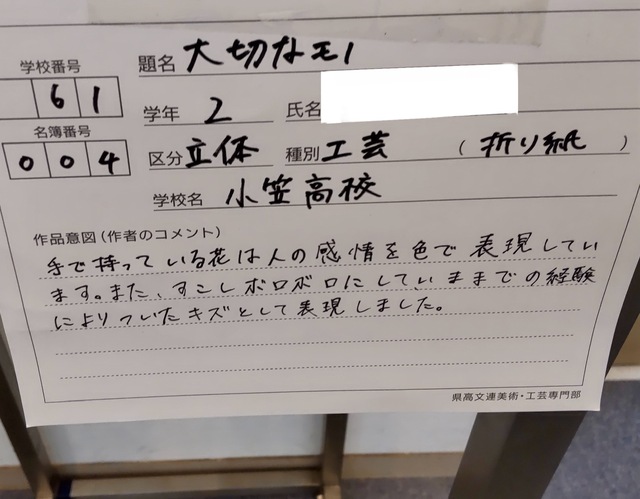 学校番号 題名 大切なモノ
61
学年 2 氏名
名簿番号
004
区分 立体 種別 工芸 (折り紙)
学校名 小笠高校
作品意図(作者のコメント)
手で持っている花は人の感情を色で表現してい
ます。また、すこしボロボロにしていままでの経験
によりついたキズとして表現しました。
県高文連美術・工芸専門部